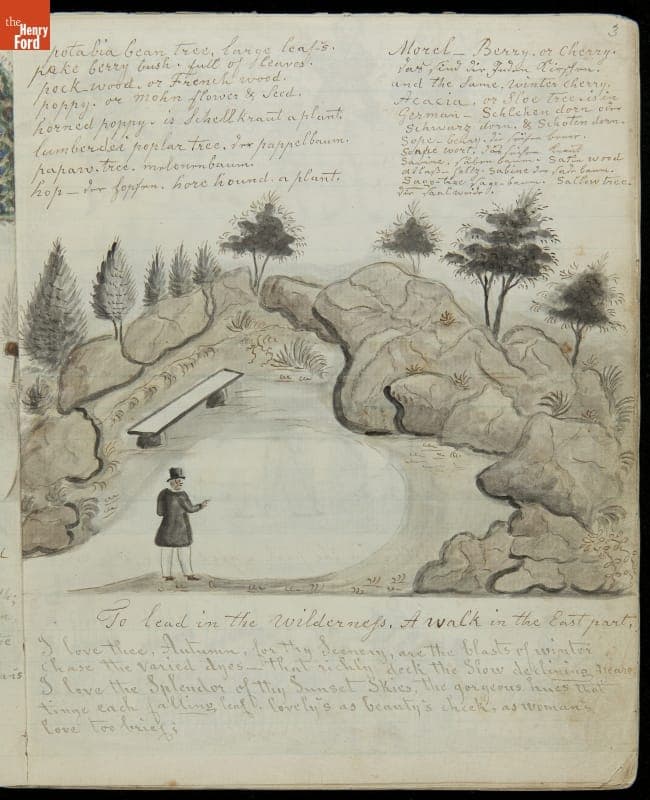 the Henry Ford
3
potabia bean tree, large leafs.
pake berry bush. full of leaves.
pock wood. or French wood.
poppy. or mohn flower & Seed.
horned poppy. is Schellkraut a plant.
lumberdei poplar tree. der pappelbaum.
papaw. tree. melonenbaum.
hop — der hopfen. hore hound. a plant.
Morel — Berry. or Cherry.
das sind die Juden Kirschen.
and the Same, winter cherry.
Acacia. or Sloe tree. is in
German — Schlehen dorn oder
Schwarz dorn. & Schoten dorn.
Sope - berry. die seifen beere.
Sabine. Satin wood
atlass holtz. Sabine der
Sago-tree Sago-baum. Sallow tree.
die Saalweide.
To lead in the Wilderness. A walk in the East part.
I love thee, Autumn, for thy Scenery, are the blasts of winter
chase the varied dyes — that richly deck the Slow declining years.
I love the Splendor of thy Sunset Skies, the gorgeous hues that
tinge each falling leaf, lovely's as beauty's cheek, as woman's
love too brief;